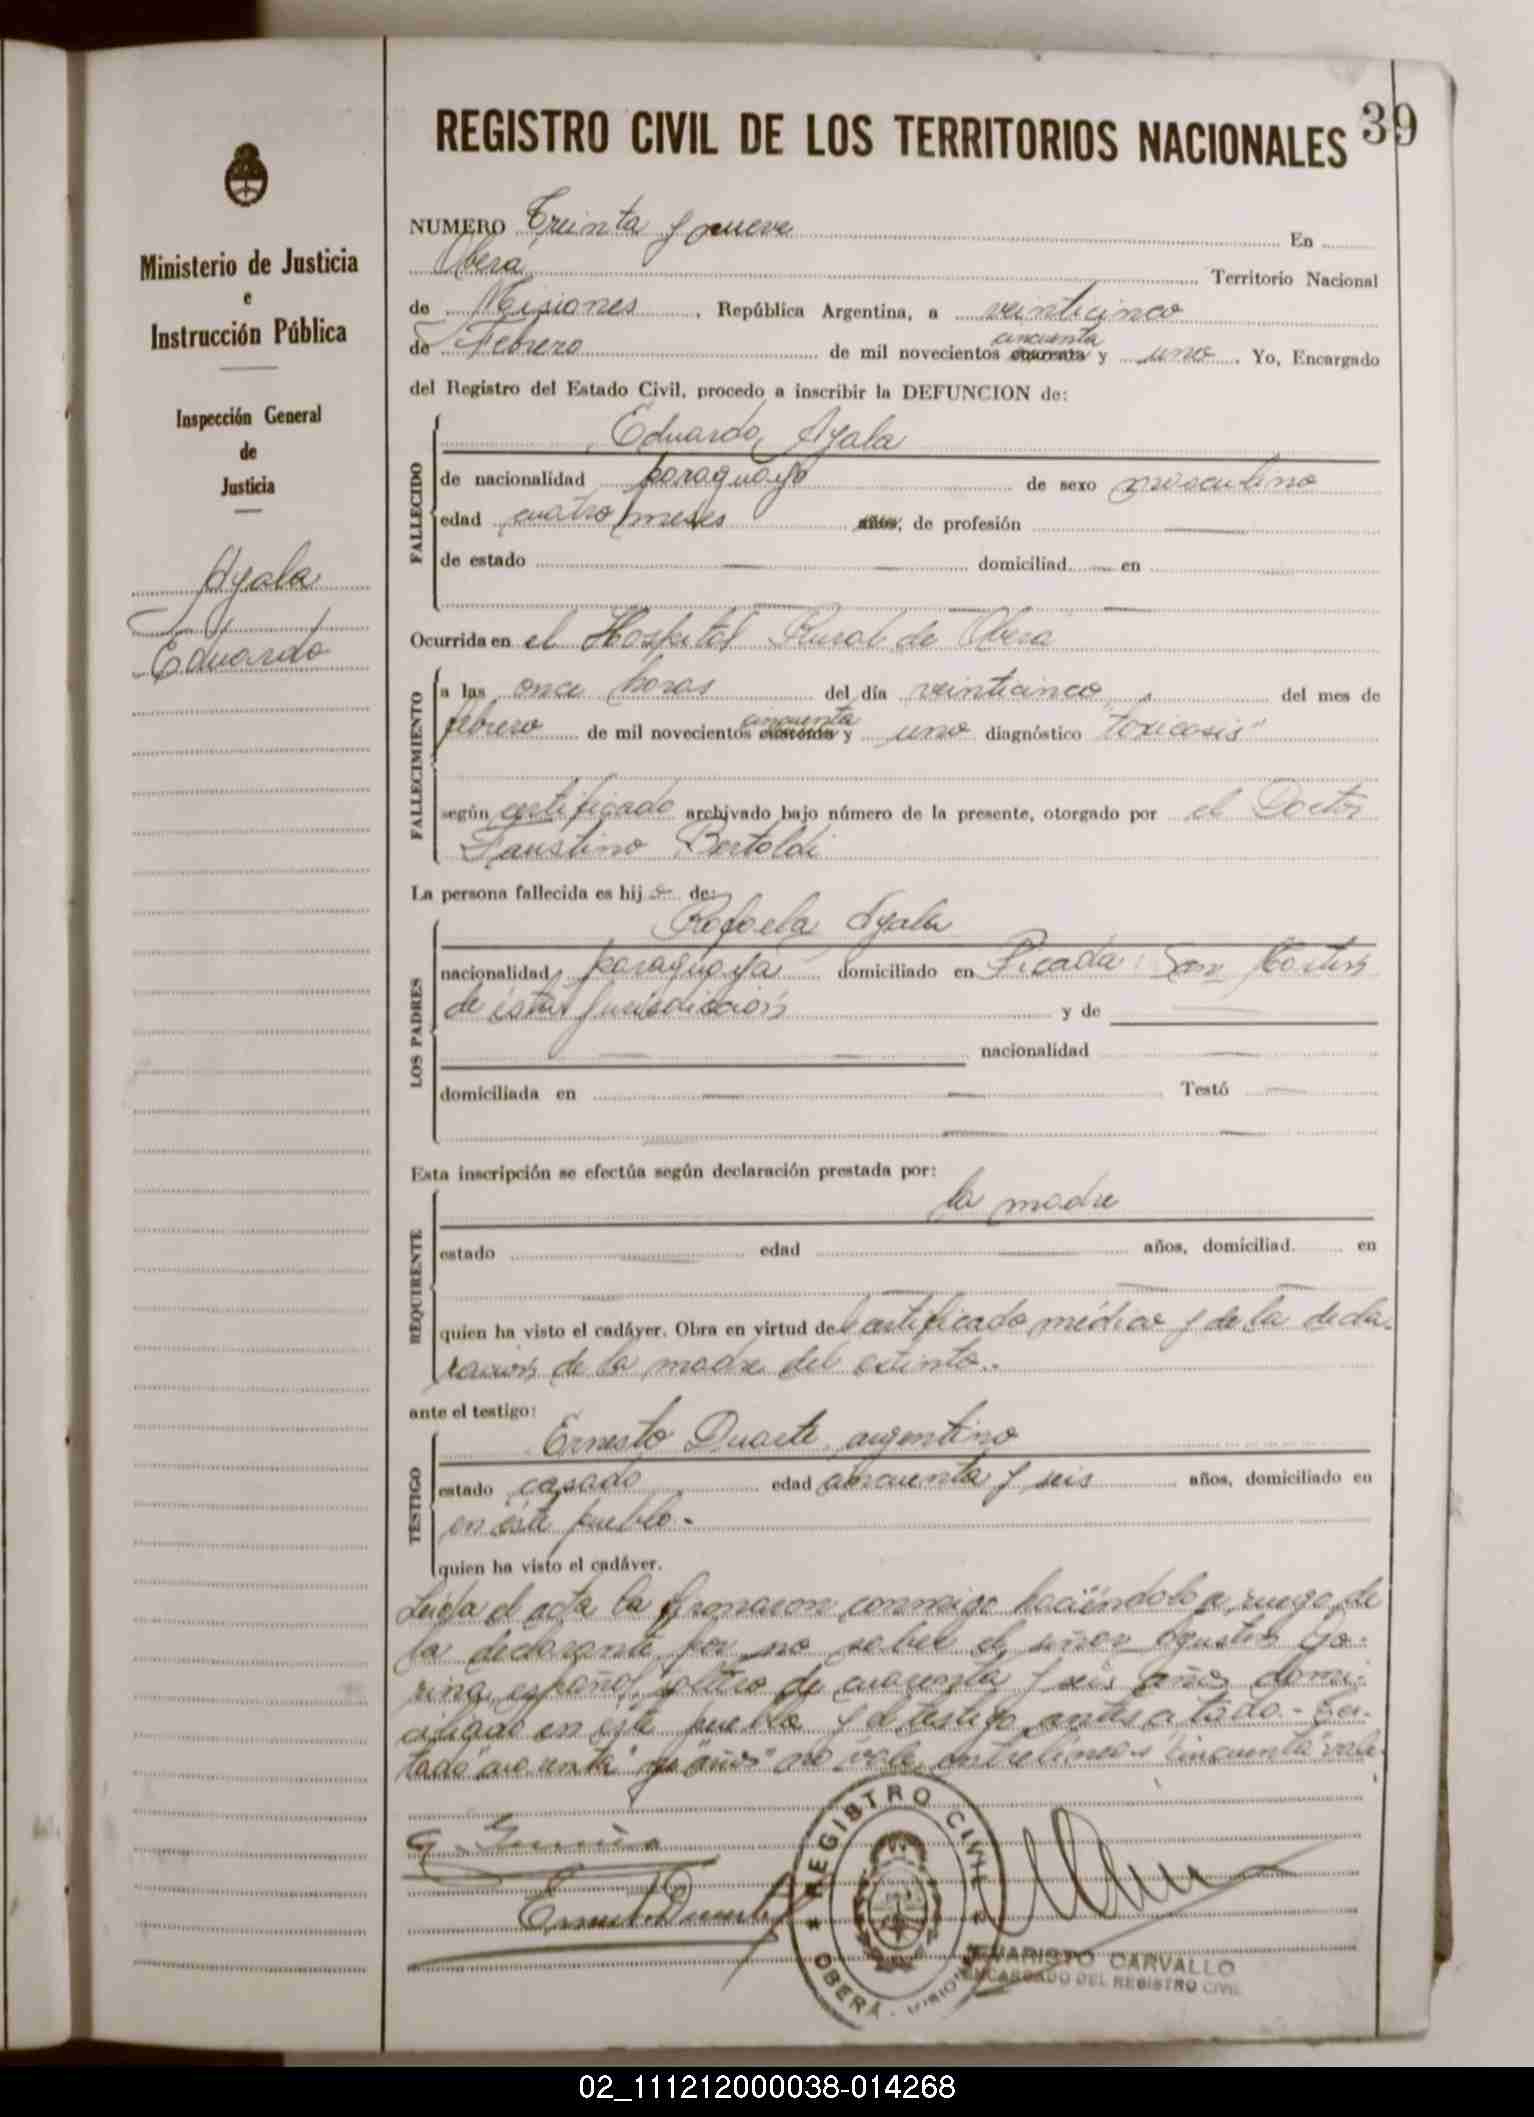 39
REGISTRO CIVIL DE LOS TERRITORIOS NACIONALES
Ministerio de Justicia
e
Instrucción Pública
Inspección General
de
Justicia
Ayala
Eduardo
NUMERO Treinta y nueve En
Obera Territorio Nacional
de Misiones, República Argentina, a veinticinco
de Febrero de mil novecientos cincuenta y uno. Yo, Encargado
del Registro del Estado Civil, procedo a inscribir la DEFUNCION de:
FALLECIDO
Eduardo Ayala
de nacionalidad paraguayo de sexo masculino
edad cuatro meses años, de profesión
de estado domiciliad en
Ocurrida en el Hospital Rural de Obera
FALLECIMIENTO
a las once horas del día veinticinco del mes de
febrero de mil novecientos cincuenta y uno diagnóstico "toxicosis"
según certificado archivado bajo número de la presente, otorgado por el Doctor
Faustino Bertoldi
La persona fallecida es hijo de:
LOS PADRES
Rafaela Ayala
nacionalidad paraguaya domiciliado en Picada San
de ésta Jurisdicción y de
nacionalidad
domiciliada en Testó
Esta inscripción se efectúa según declaración prestada por:
REQUIRENTE
la madre
estado edad años, domiciliad en
quien ha visto el cadáver. Obra en virtud del certificado médico y de la decla-
ración de la madre del extinto.-
ante el testigo:
TESTIGO
Ernesto Duarte, argentino
estado casado edad cincuenta y seis años, domiciliado en
en éste pueblo.-
quien ha visto el cadáver.
Leída el acta la firmaron conmigo haciéndolo a ruego de
la declarante por no saber el señor Agustin
español, soltero de cuarenta y seis años domi-
ciliado en éste pueblo y el testigo antes citado.- Tes-
tado "cuarenta" y "años" no vale, entrelineas "cincuenta" vale.
Ernesto Duarte
REGISTRO CIVIL
OBERA - MISIONES
EVARISTO CARVALLO
ENCARGADO DEL REGISTRO CIVIL
02_111212000038-014268